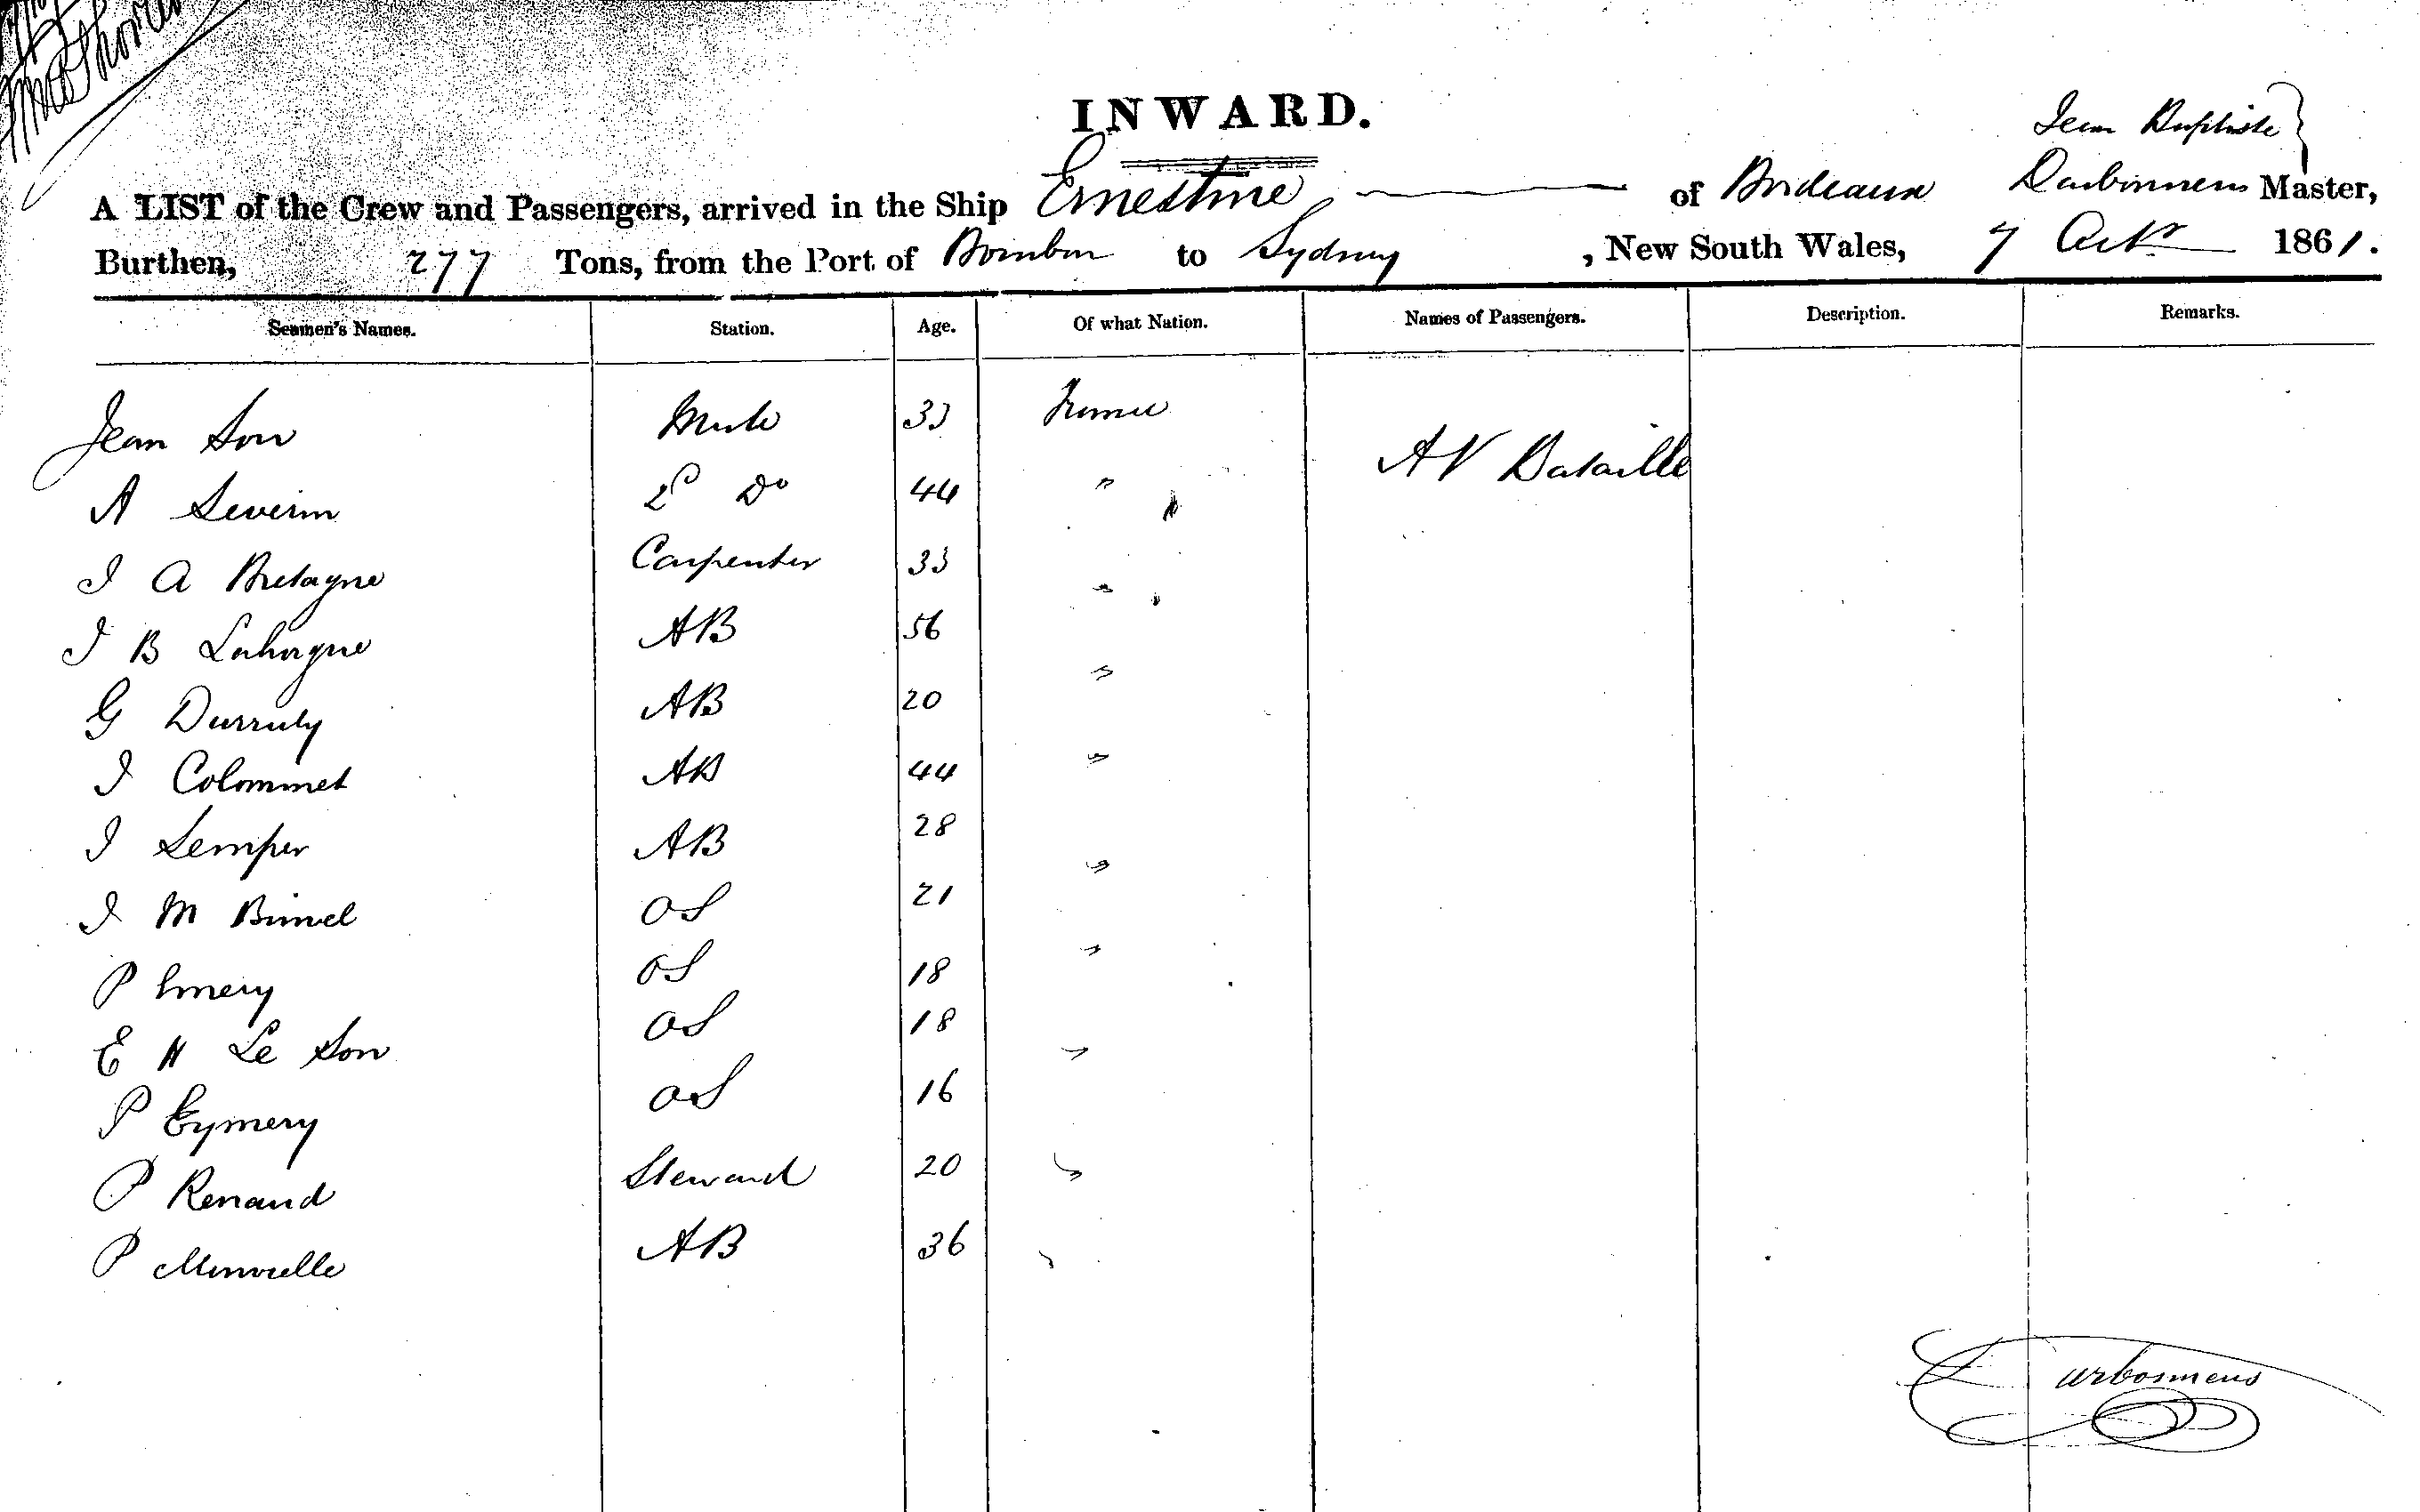 INWARD.
Jean Baptiste
A LIST of the Crew and Passengers, arrived in the Ship Ernestine of Bordeaux Darbonnens Master,
Burthen, 277 Tons, from the Port of Bourbon to Sydney, New South Wales, 7 Octr 1861.
Seamen's Names. Station. Age. Of what Nation. Names of Passengers. Description. Remarks.
Jean Sou Mate 33 France
A V Bataille
A Severin 2d Do 44 "
J A Bretagne Carpenter 33 "
J B Lahorgue AB 56 "
G Durruty AB 20 "
J Colommet AB 44 "
J Semper AB 28 "
J M Bimel OS 21 "
P Emery OS 18
E H Le Son OS 18 "
P Eymery OS 16
P Renaud Steward 20 "
P Minvielle AB 36 "
Darbonnens